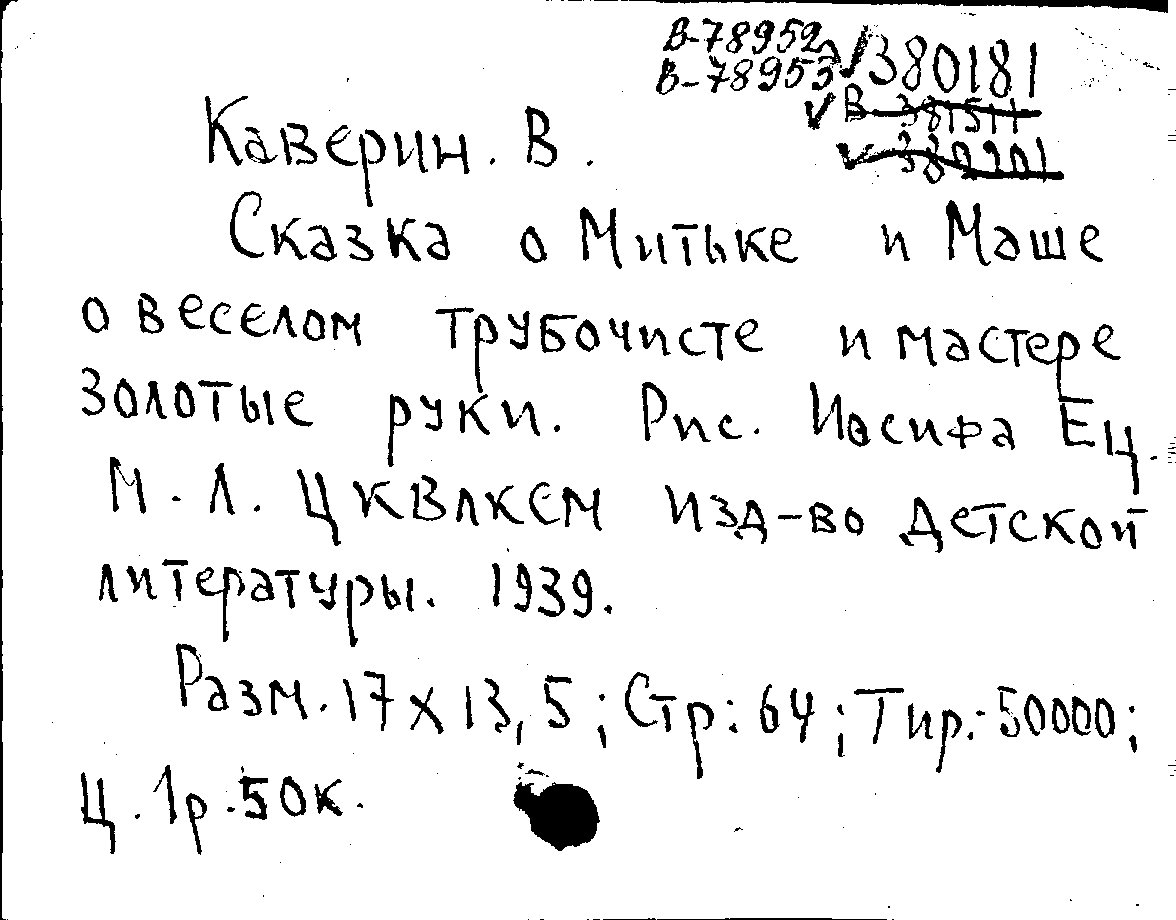 В-78952
В-78953 380181
В 381511
380201
Каверин. В.
Сказка о Митьке и Маше
о веселом трубочисте и мастере
золотые руки. Рис. Иосифа Ец.
М. Л. ЦКВЛКСМ изд-во детской
литературы. 1939.
Разм. 17 х 13,5; Стр: 64; Тир.: 50000;
Ц. 1р. 50к.